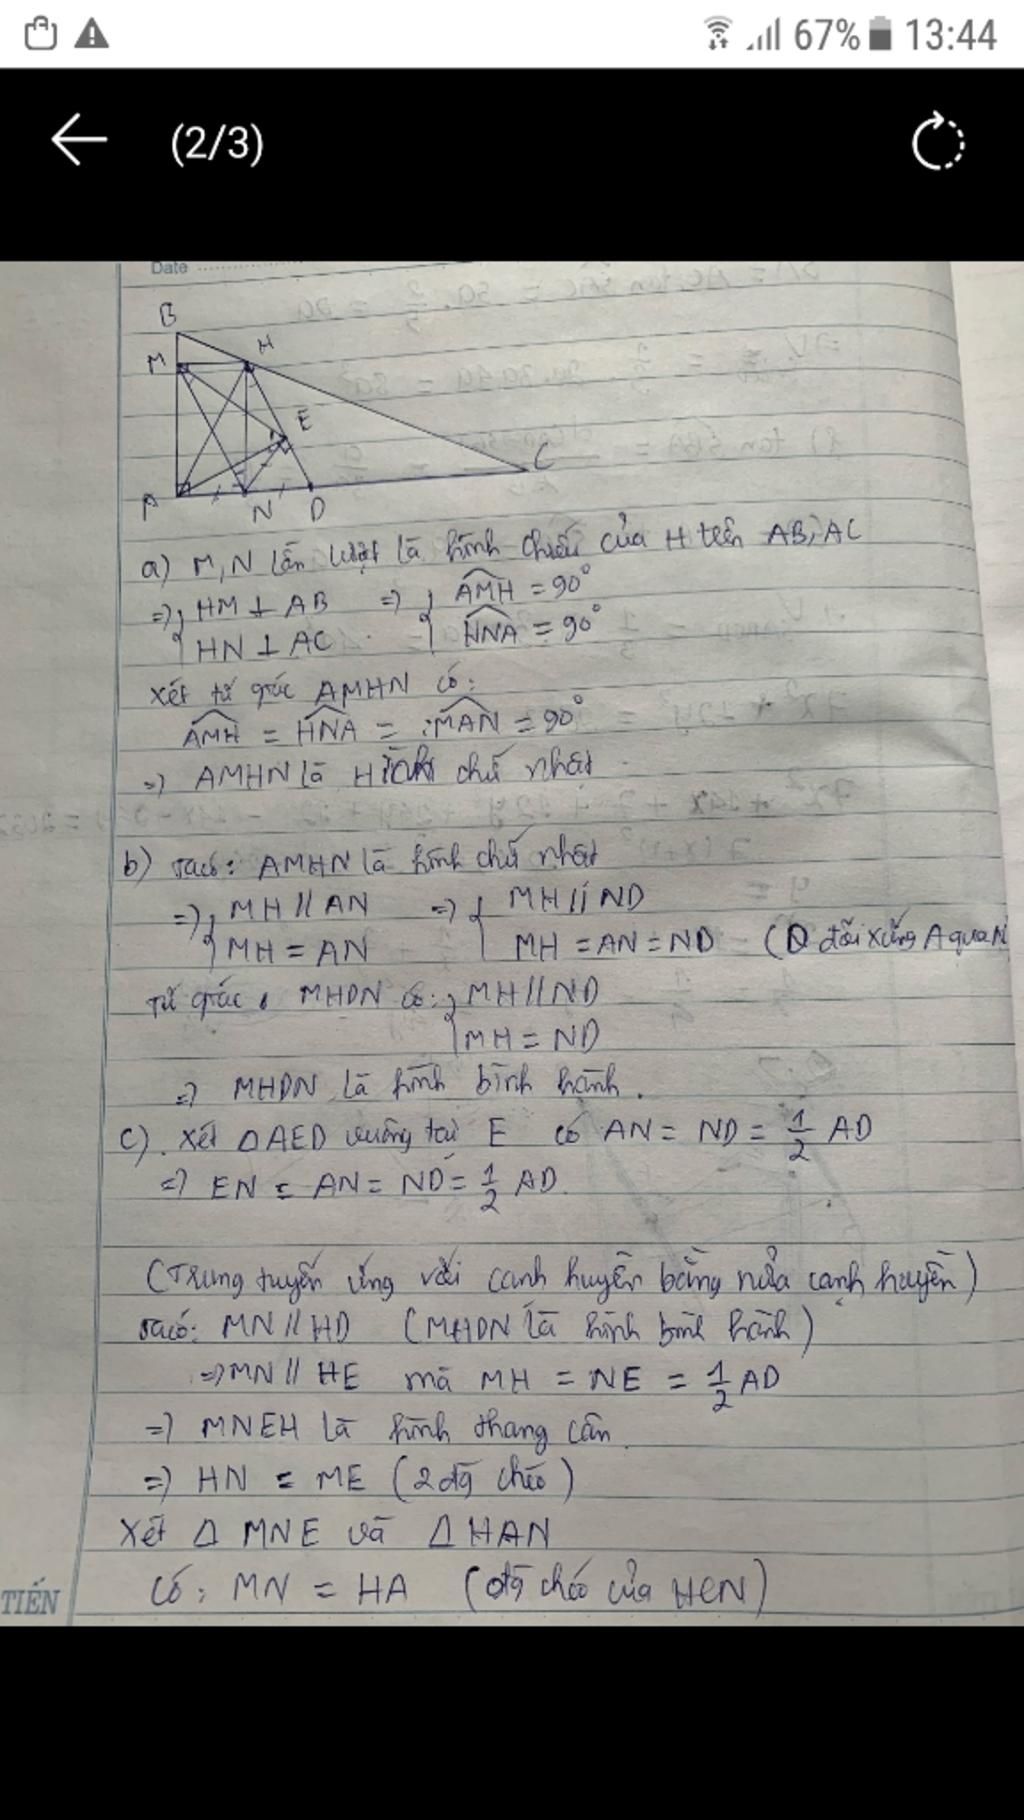 67% 13:44
(2/3)
Date
B
M
H
E
C
A
N
D
a) M, N lần lượt là hình chiếu của H trên AB, AC
=> { HM ⊥ AB => { AMH = 90°
HN ⊥ AC HNA = 90°
Xét tứ giác AMHN có:
AMH = HNA = MAN = 90°
=> AMHN là Hình chữ nhật
b) Ta có: AMHN là hình chữ nhật
=> { MH // AN => { MH // ND
MH = AN MH = AN = ND (D đối xứng A qua N
Tứ giác MHDN có: { MH // ND
MH = ND
=> MHDN là hình bình hành.
c). Xét ΔAED vuông tại E có AN = ND = 1/2 AD
=> EN = AN = ND = 1/2 AD
(Trung tuyến ứng với cạnh huyền bằng nửa cạnh huyền)
Ta có: MN // HD (MHDN là hình bình hành)
=> MN // HE mà MH = NE = 1/2 AD
=> MNEH là hình thang cân
=> HN = ME (2 đg chéo)
Xét Δ MNE và Δ HAN
Có: MN = HA (đg chéo của HCN)
TIẾN